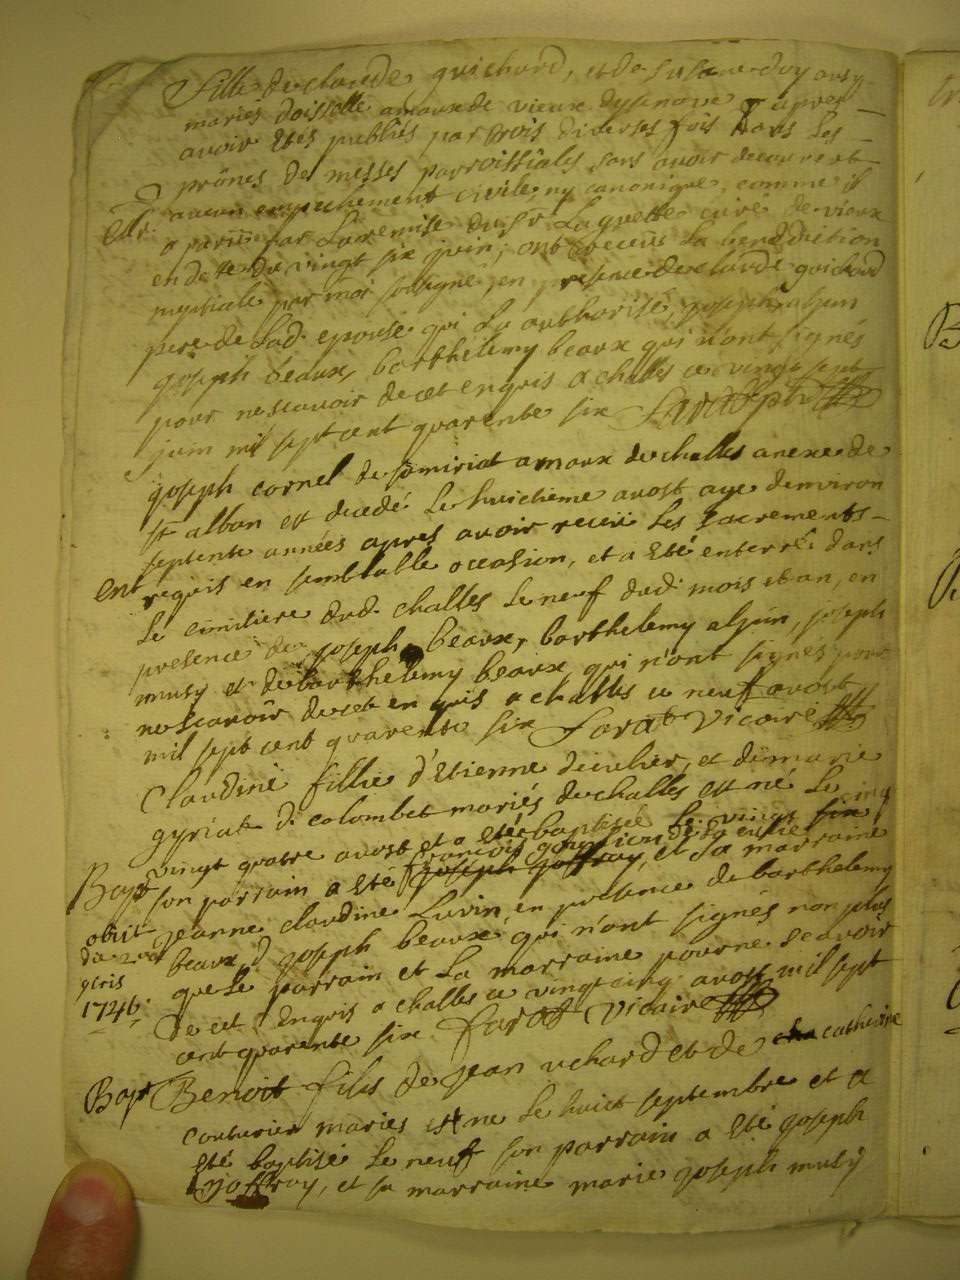 fille de claude guichard, et de susane dvy ausy
mariés doisselle amaux de vieux dysenave et apres
avoir Etés publiés par trois diverses fois dans Les
prônes de messes parroissiales sans avoir decouvert
Mr. aucun empechement civile, ny canonique, comme il
a parû par La remise du Sr Laguette curé de vieux
en date du vingt six juin, ont receûs La benediction
nuptiale par moi sousigné, en presence de claude guichard
pere de Lad. epouse qui La authorisé, joseph aljuin
joseph beaux, barthelemy beaux qui n'ont signés
pour ne scavoir de cet enquis a challes ce vingt sept
juin mil sept cent quarente six Farat
joseph cornel de somiriat amaux de challes anexe de
st alban est decedé Le huictieme avost age d'environ
septente années apres avoir receû Les sacrements
Ent requis en semblable occasion, et a Eté enterré dans
Le cimitiere dud. challes Le neuf dud. mois et an, en
presence de joseph beaux, barthelemy aljuin, joseph
musy et de barthelemy beaux qui n'ont signés pour
ne scavoir de cet enquis a challes ce neuf avost
mil sept cent quarente six Farat Vicaire
Claudine fillie d'Etienne decuher, et de marie
gyriat d. colombet mariés de challes est née Le
vingt quatre avost et a Eté baptisée Le vingt six cinq
francois goujon de La cullie
Bapt son parrain a Eté joseph joffray, et sa marraine
obiit jeanne claudine Luvin, en presence de barthelemy
da 20a beaux, d. joseph beaux qui n'ont signés non plus
9bris que Le parrain et La marraine pour ne scavoir
1746. de cet Enquis a challes ce vingt cinq avost mil sept
cent quarente six Farat Vicaire
Bapt Benoit fils de jean uchard et de cha catherine
couturier mariés est né Le huict septembre et a
Eté baptisé Le neuf son parrain a Eté joseph
joffray, et sa marraine marie joseph musy